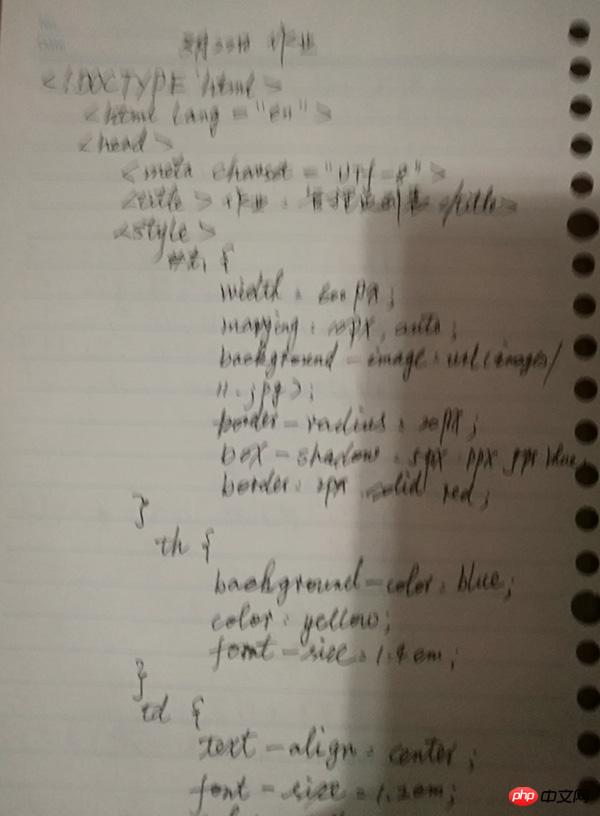 作业
<!DOCTYPE html>
<html lang = "en">
<head>
<meta charset = "UTF-8">
<title> 作业: </title>
<style>
{
width: px;
px, auto;
background-image: url(images/
11.jpg);
border-radius: px;
box-shadow: 5px blue
border: solid red;
}
th {
background-color: blue;
color: yellow;
font-size: 1.4em;
}
td {
text-align: center;
font-size: 1.2em;
php 中文网